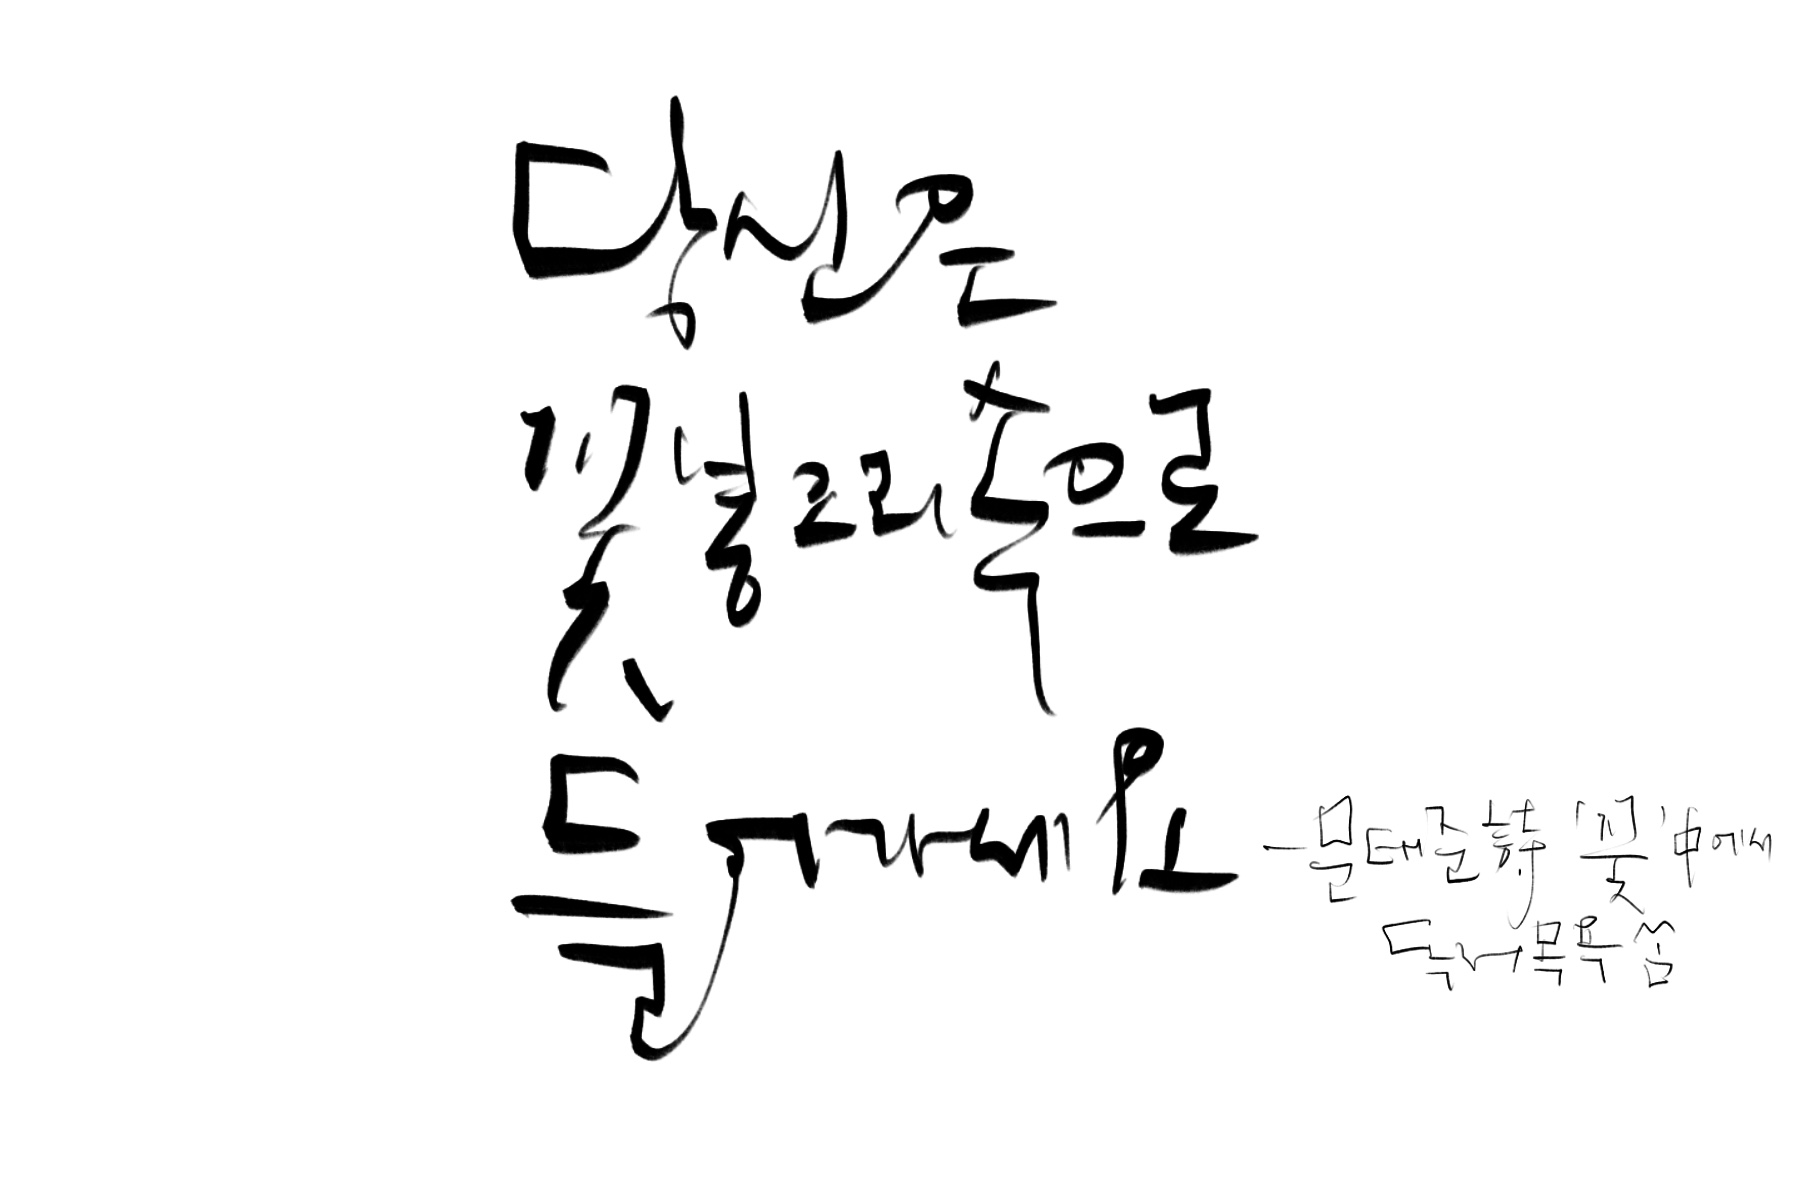 당신은
꽃봉오리 속으로
들어가세요
- 문태준 詩 '꽃' 中에서
독서목욕 씀